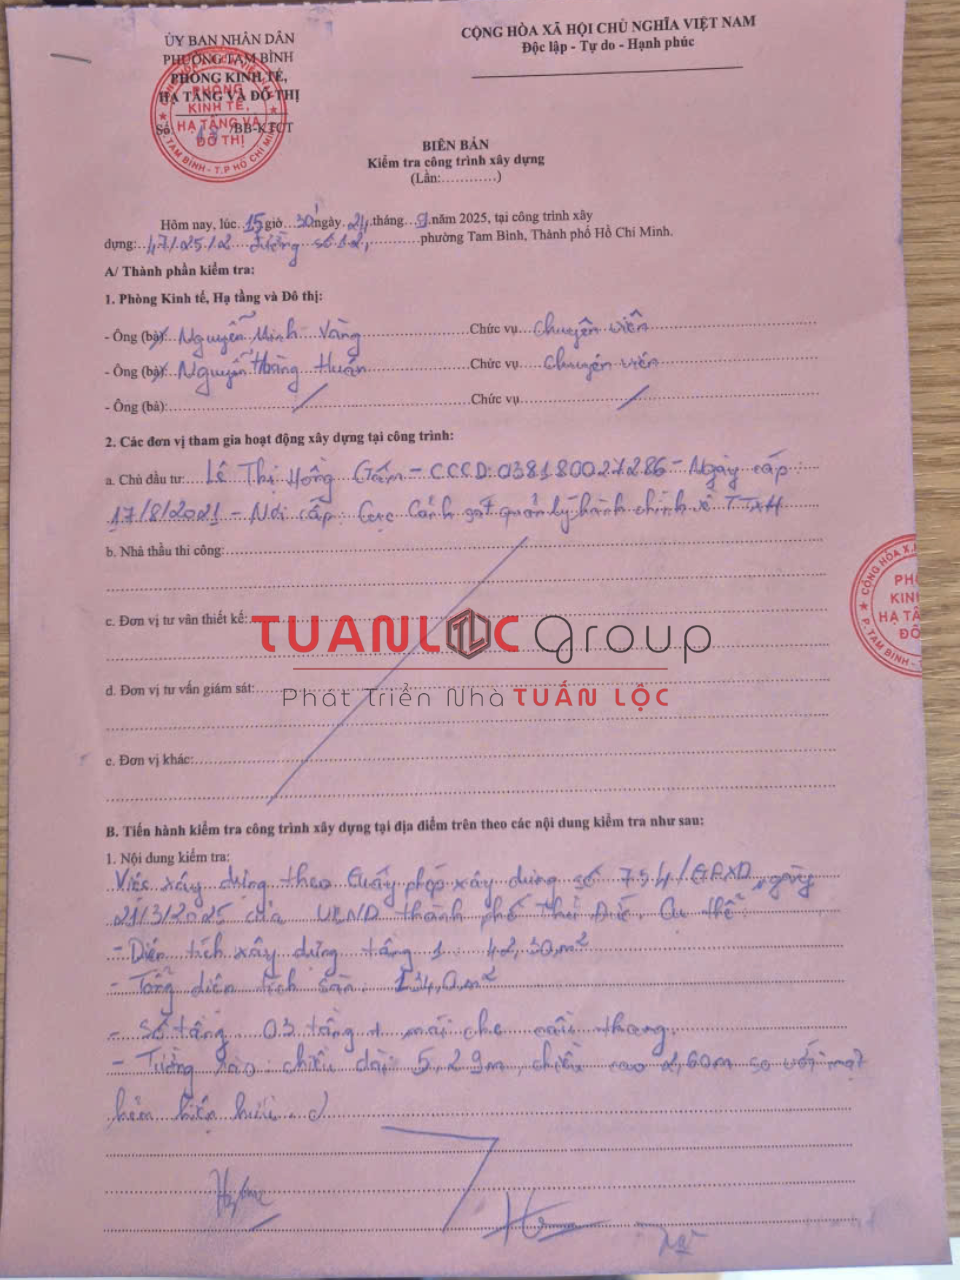 ỦY BAN NHÂN DÂN
PHƯỜNG TAM BÌNH
PHÒNG KINH TẾ,
HẠ TẦNG VÀ ĐÔ THỊ
Số: /BB-KTCT
CỘNG HÒA XÃ HỘI CHỦ NGHĨA VIỆT NAM
Độc lập - Tự do - Hạnh phúc
PHÒNG
KINH TẾ,
HẠ TẦNG VÀ
ĐÔ THỊ
P. TAM BÌNH - T.P HỒ CHÍ MINH
BIÊN BẢN
Kiểm tra công trình xây dựng
(Lần:............)
Hôm nay, lúc 15 giờ 30 ngày 24 tháng 9 năm 2025, tại công trình xây
dựng: 47/25/2 đường số 12, phường Tam Bình, Thành phố Hồ Chí Minh.
A/ Thành phần kiểm tra:
1. Phòng Kinh tế, Hạ tầng và Đô thị:
- Ông (bà) Nguyễn Minh Vàng Chức vụ Chuyên viên
- Ông (bà) Nguyễn Hoàng Huấn Chức vụ Chuyên viên
- Ông (bà): Chức vụ
2. Các đơn vị tham gia hoạt động xây dựng tại công trình:
a. Chủ đầu tư: Lê Thị Hồng Gấm - CCCD: 038180027286 - Ngày cấp
17/8/2021 - Nơi cấp: Cục Cảnh sát quản lý hành chính về TTXH
b. Nhà thầu thi công:
c. Đơn vị tư vấn thiết kế:
TUANLỘC Group
d. Đơn vị tư vấn giám sát:
Phát Triển Nhà TUẤN LỘC
e. Đơn vị khác:
CỘNG HÒA X.
PHÒ
KINH
HẠ TẦ
ĐÔ
P. TAM BÌNH
B. Tiến hành kiểm tra công trình xây dựng tại địa điểm trên theo các nội dung kiểm tra như sau:
1. Nội dung kiểm tra:
Việc xây dựng theo Giấy phép xây dựng số 754/GPXD, ngày
21/3/2025 của UBND thành phố Thủ Đức. Cụ thể:
- Diện tích xây dựng tầng 1: 42,30m²
- Tổng diện tích sàn: 134,0m²
- Số tầng 03 tầng + mái che cầu thang.
- Tường rào chiều dài 5,29m, chiều cao 2,60m so với mặt
hẻm hiện hữu.